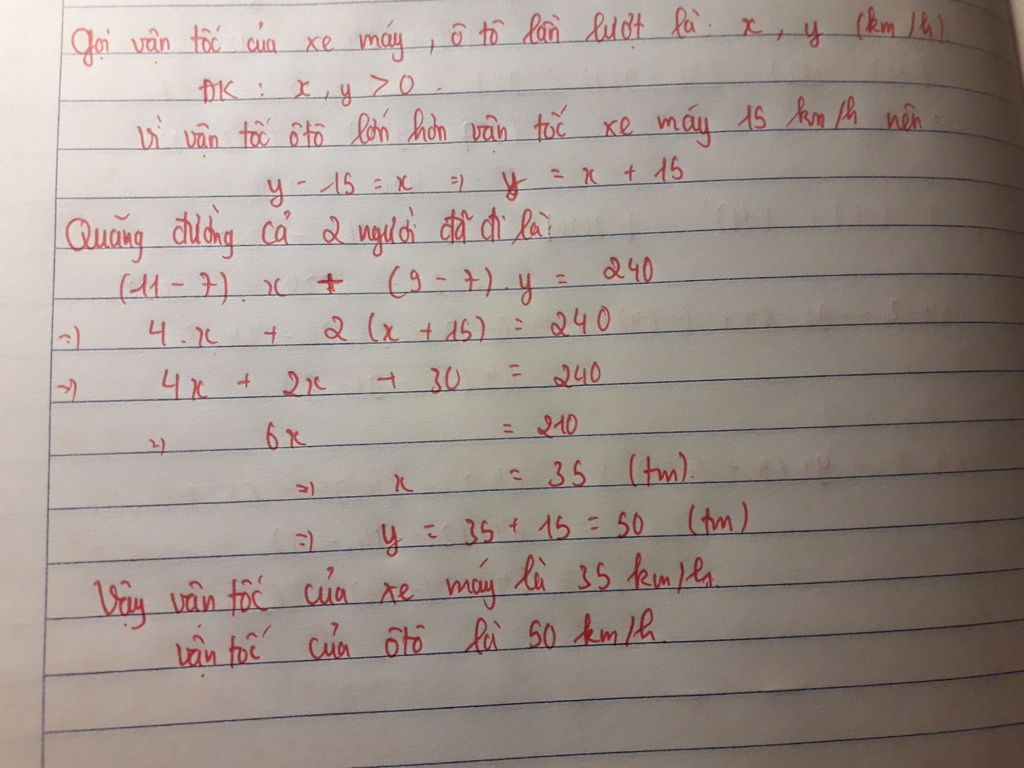 Gọi vận tốc của xe máy, ô tô lần lượt là: x, y (km/h)
ĐK: x, y > 0.
Vì vận tốc ôtô lớn hơn vận tốc xe máy 15 km/h nên:
y - 15 = x => y = x + 15
Quãng đường cả 2 người đã đi là:
(11 - 7). x + (9 - 7). y = 240
=> 4.x + 2 (x + 15) = 240
=> 4x + 2x + 30 = 240
=> 6x = 210
=> x = 35 (tm).
=> y = 35 + 15 = 50 (tm)
Vậy vận tốc của xe máy là 35 km/h.
vận tốc của ôtô là 50 km/h